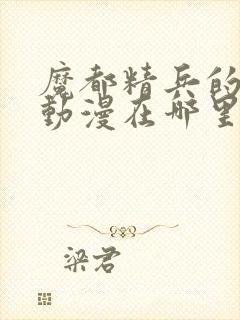 魔都精兵的
動漫在哪里
梁君